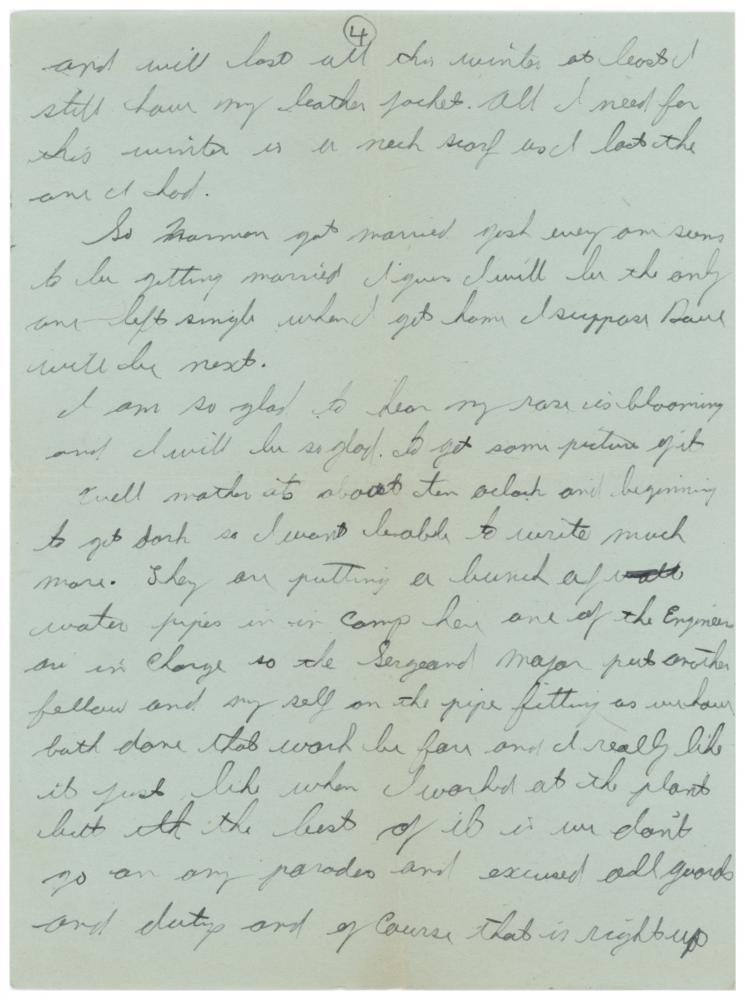 4
and will last all this winter at least I
still have my leather jacket. All I need for
this winter is a neck scarf as I lost the
one I had.
So Norman got married gosh every one seems
to be getting married I guess I will be the only
one left single when I get home I suppose Dave
will be next.
I am so glad to hear my rose is blooming
and I will be so glad to get some picture of it
Well mother its about ten oclock and beginning
to get dark so I wont be able to write much
more. They are putting a bunch of
water pipes in in Camp here one of the Engineers
are in Charge so the Sergeant Major put another
fellow and my self on the pipe fitting as we have
both done that work be fore and I really like
it just like when I worked at the plant
but the best of it is we don't
go on any parades and excused all guards
and dutys and of Course that is right up